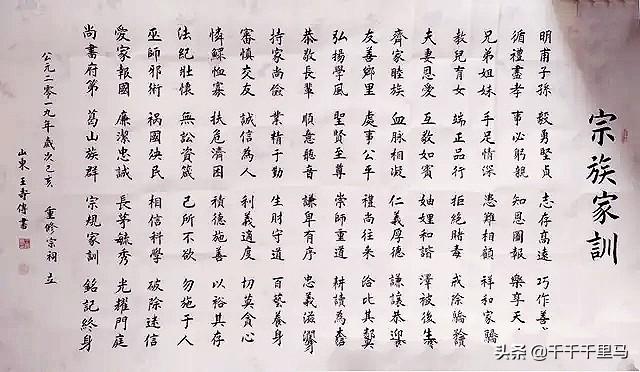 宗族家訓
明甫子孫 毅勇堅貞 志存高遠 巧作善
循禮盡孝 事必躬親 知恩圖報 樂享天
兄弟姐妹 手足情深 患難相顧 祥和家
教兒育女 端正品行 拒絕賭毒 戒除驕
夫妻恩愛 互敬如賓 妯娌和諧 澤被後
齊家睦族 血脉相凝 仁義厚德 謙讓恭
友善鄉里 處事公平 禮尚往來 洽比其
弘揚學風 聖賢至尊 崇師重道 耕讀為本
恭敬長輩 順意聽音 謙卑有序 忠義滋
持家尚儉 業精于勤 生財守道 百藝養身
審慎交友 誠信為人 利義適度 切莫貪心
憐鰥恤寡 扶危濟困 積德施善 以裕其存
法紀壯懷 無訟資箴 己所不欲 勿施于人
巫師邪術 禍國殃民 相信科學 破除迷信
愛家報國 廉潔忠誠 長茅毓秀 光耀門庭
尚書府第 葛山族群 宗規家訓 銘記終身
公元二零一九年歲次己亥 重修宗祠 立
山東 王壽傳書
头条 @千千千里马